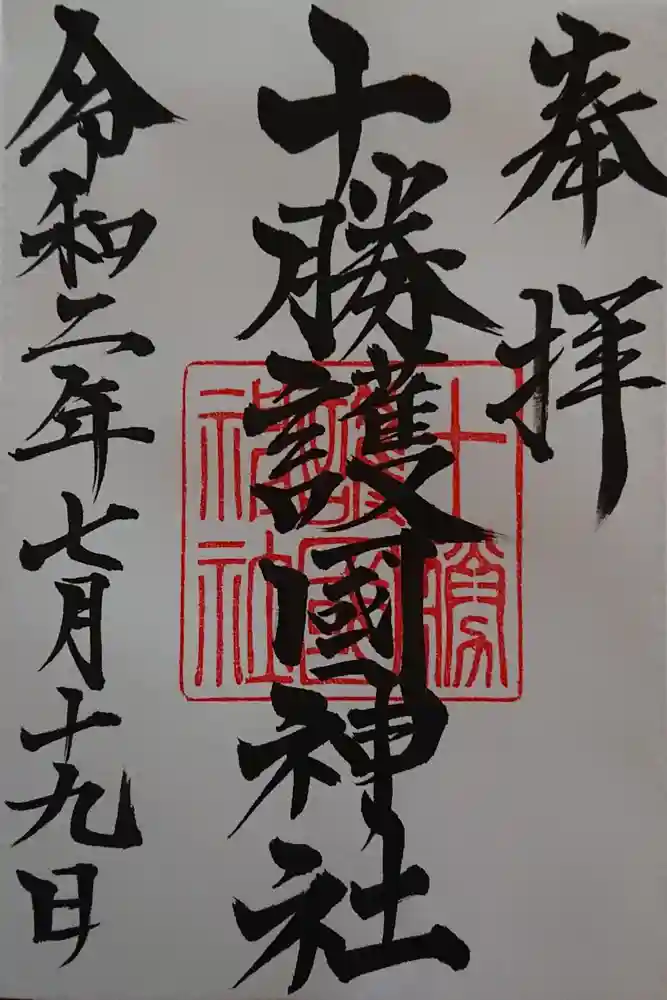 奉拝
十勝護國神社
十勝
護國
神社
令和二年七月十九日